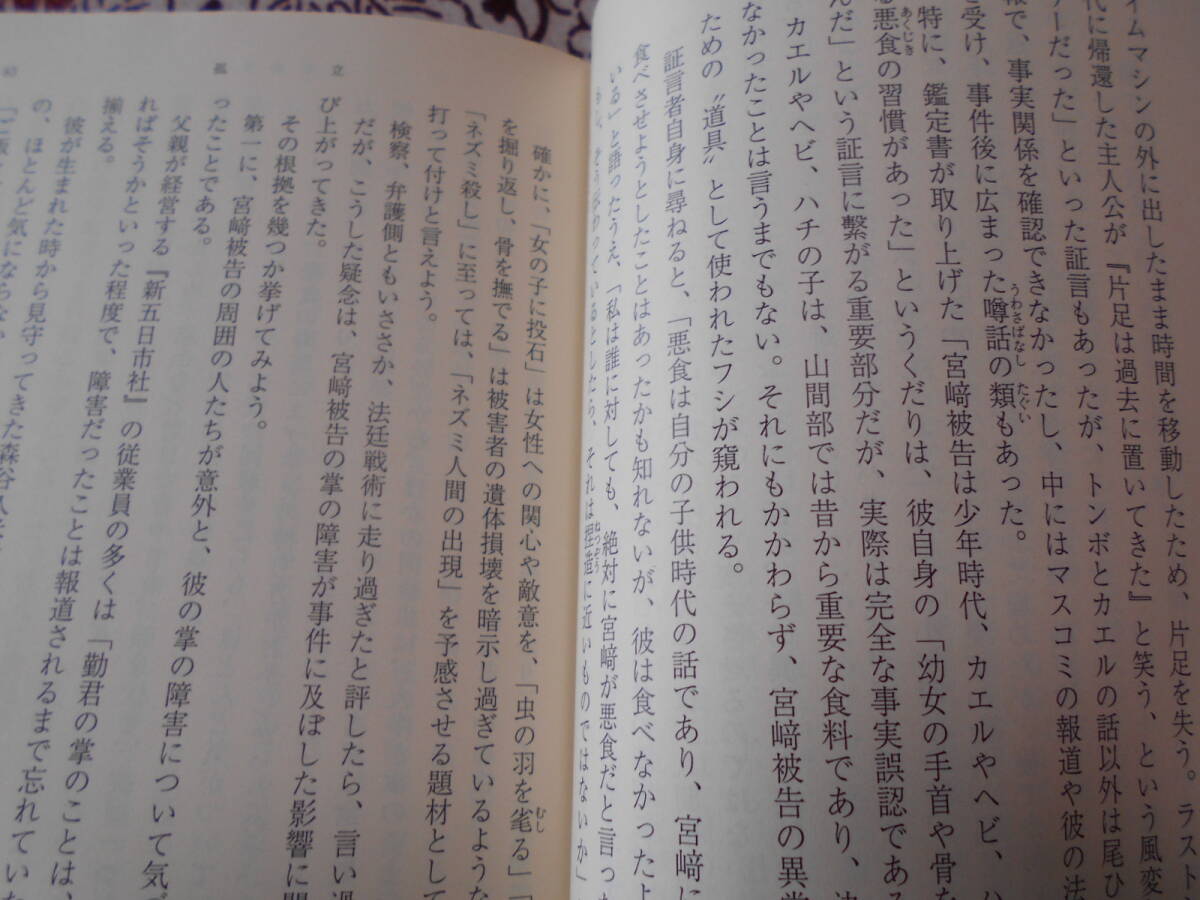 イムマシンの外に出したまま時間を移動したため、片足を失う。ラスト
代に帰還した主人公が『片足は過去に置いてきた』と笑う、という風変
ーだった」といった証言もあったが、トンボとカエルの話以外は尾ひ
報で、事実関係を確認できなかったし、中にはマスコミの報道や彼の法
を受け、事件後に広まった噂話の類もあった。
うわさばなし
たぐい
特に、鑑定書が取り上げた「宮﨑被告は少年時代、カエルやヘビ、ハ
る悪食の習慣があった」というくだりは、彼自身の「幼女の手首や骨な
あくじき
んだ」という証言に繋がる重要部分だが、実際は完全な事実誤認である
カエルやヘビ、ハチの子は、山間部では昔から重要な食料であり、決
なかったことは言うまでもない。それにもかかわらず、宮﨑被告の異常
ための〝道具〟として使われたフシが窺われる。
証言者自身に尋ねると、「悪食は自分の子供時代の話であり、宮﨑に
食べさせようとしたことはあったかも知れないが、彼は食べなかったよ
いる」と語ったうえ、「私は誰に対しても、絶対に宮﨑が悪食だと言った
もし、そう伝わっているとしたら、それは捏造に近いものではないか」
ねつぞう
確かに、「女の子に投石」は女性への関心や敵意を、「虫の羽を毟る」「
むし
を掘り返し、骨を撫でる」は被害者の遺体損壊を暗示し過ぎているような
「ネズミ殺し」に至っては、「ネズミ人間の出現」を予感させる題材として
打って付けと言えよう。
検察、弁護側ともいささか、法廷戦術に走り過ぎたと評したら、言い過
だが、こうした疑念は、宮﨑被告の掌の障害が事件に及ぼした影響に関
び上がってきた。
その根拠を幾つか挙げてみよう。
第一に、宮﨑被告の周囲の人たちが意外と、彼の掌の障害について気づ
ったことである。
父親が経営する『新五日市社』の従業員の多くは「勤君の掌のことは、
ればそうかといった程度で、障害だったことは報道されるまで忘れていた
揃える。
彼が生まれた時から見守ってきた森谷
の、ほとんど気にならなか
孤
立